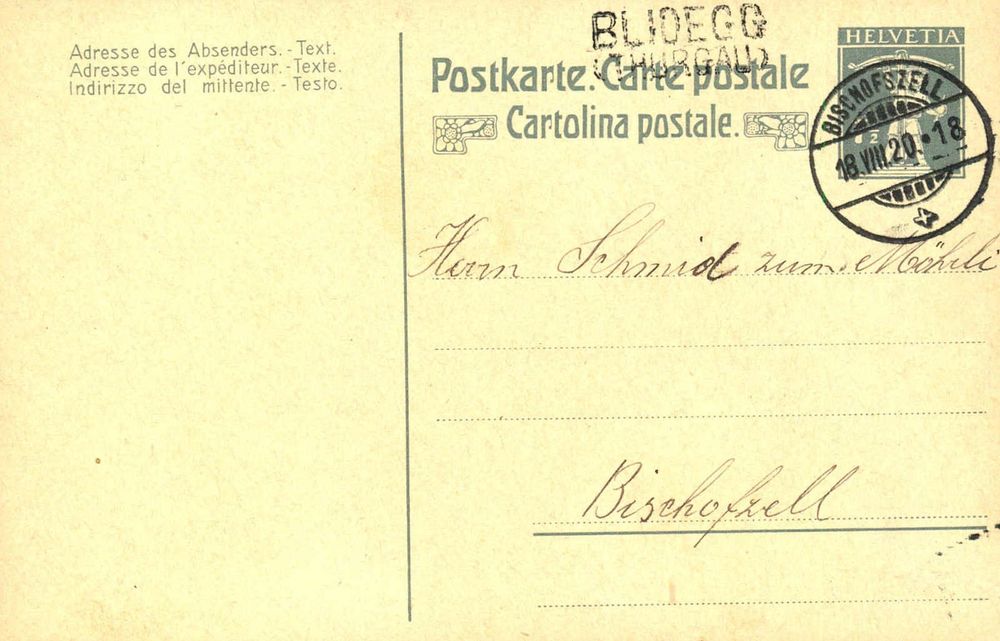 BLIDEGG
(THURGAU)
HELVETIA
Adresse des Absenders.-Text.
Adresse de l'expéditeur.-Texte.
Indirizzo del mittente.-Testo.
Postkarte. Carte postale
Cartolina postale.
BISCHOFSZELL
18.VIII.20.-18
Herrn Schmid zum. Möhrli
Bischofzell